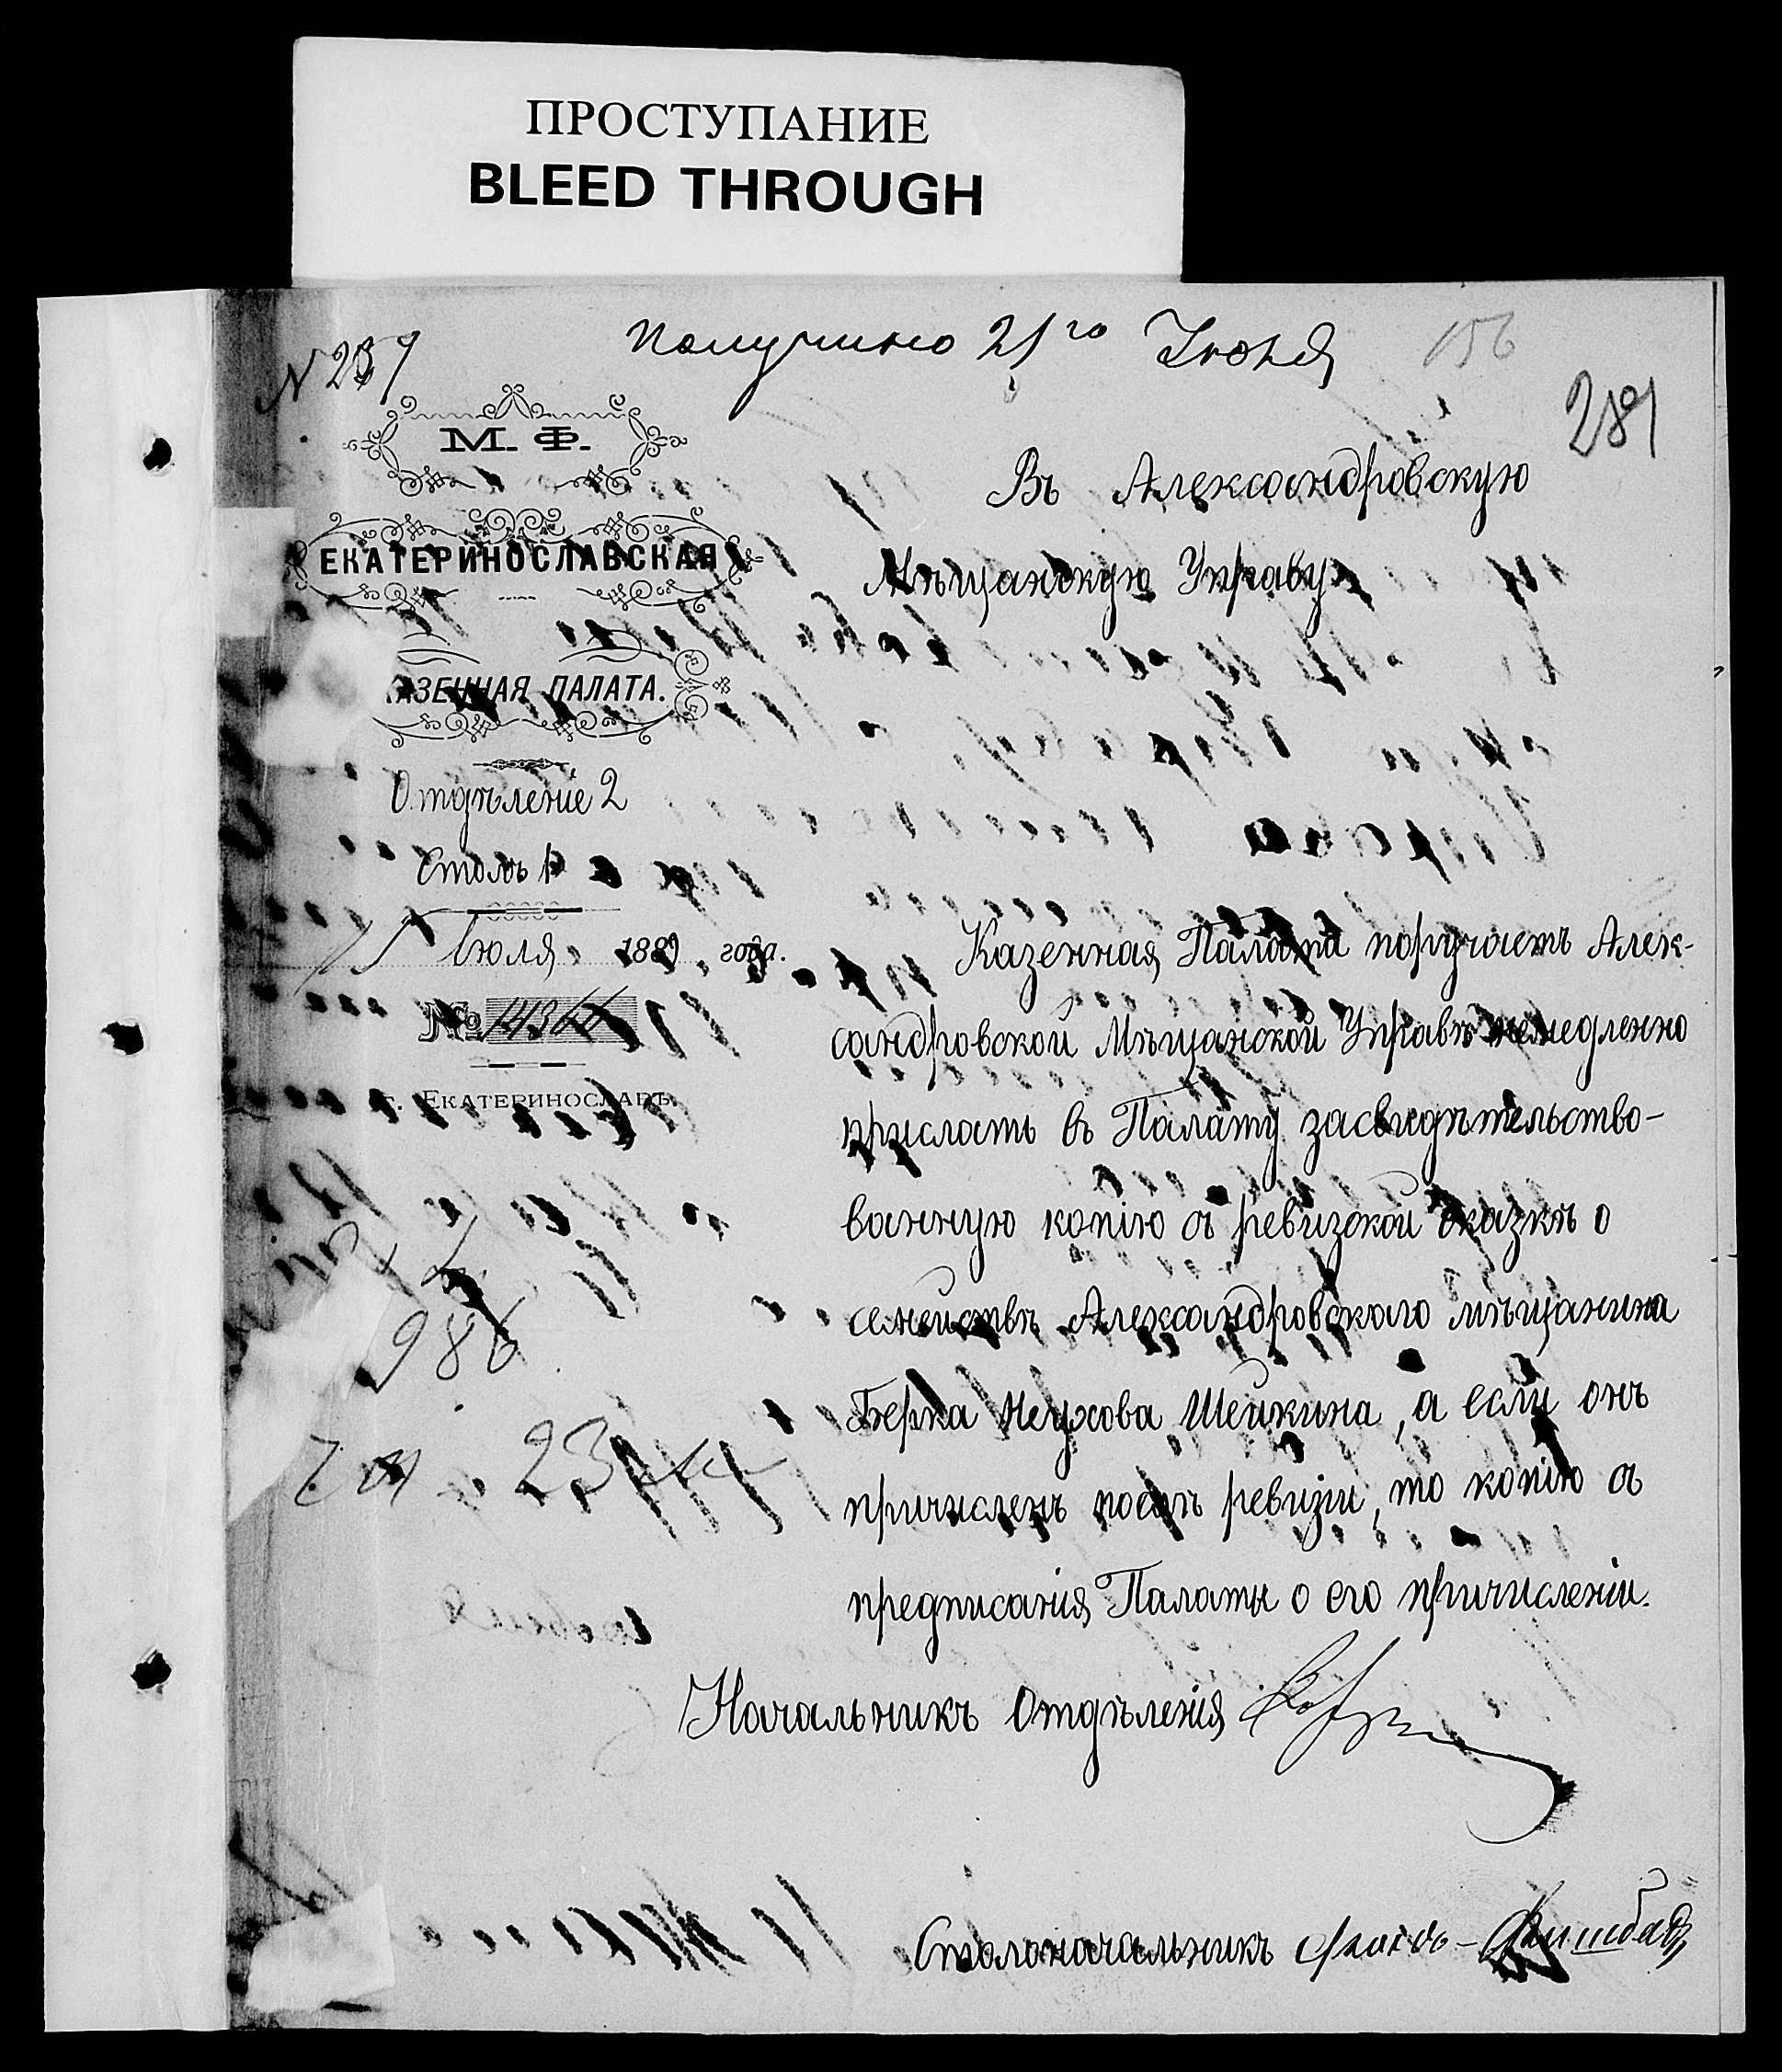 ПРОСТУПАНИЕ
BLEED THROUGH
Получино 21го Июля
156
N 237
289
М. Ф.
ЕКАТЕРИНОСЛАВСКАЯ
КАЗЕННАЯ ПАЛАТА.
Отдѣленіе 2
Столъ 1
15 Іюля 1889 года.
№ 14366
г. Екатеринославъ
986
23
Въ Александровскую
Мѣщанскую Управу
Казенная Палата поручаетъ Алек-
сандровской Мѣщанской Управѣ немедленно
прислать въ Палату засвидѣтельство-
ванную копію съ ревизской сказкѣ о
семействѣ Александровскаго мѣщанина
Берка Неухова Шейкина, а если онъ
причисленъ послѣ ревизіи, то копію съ
предписанія Палаты о его причисленіи.
Начальникъ Отдѣленія
Столоначальникъ